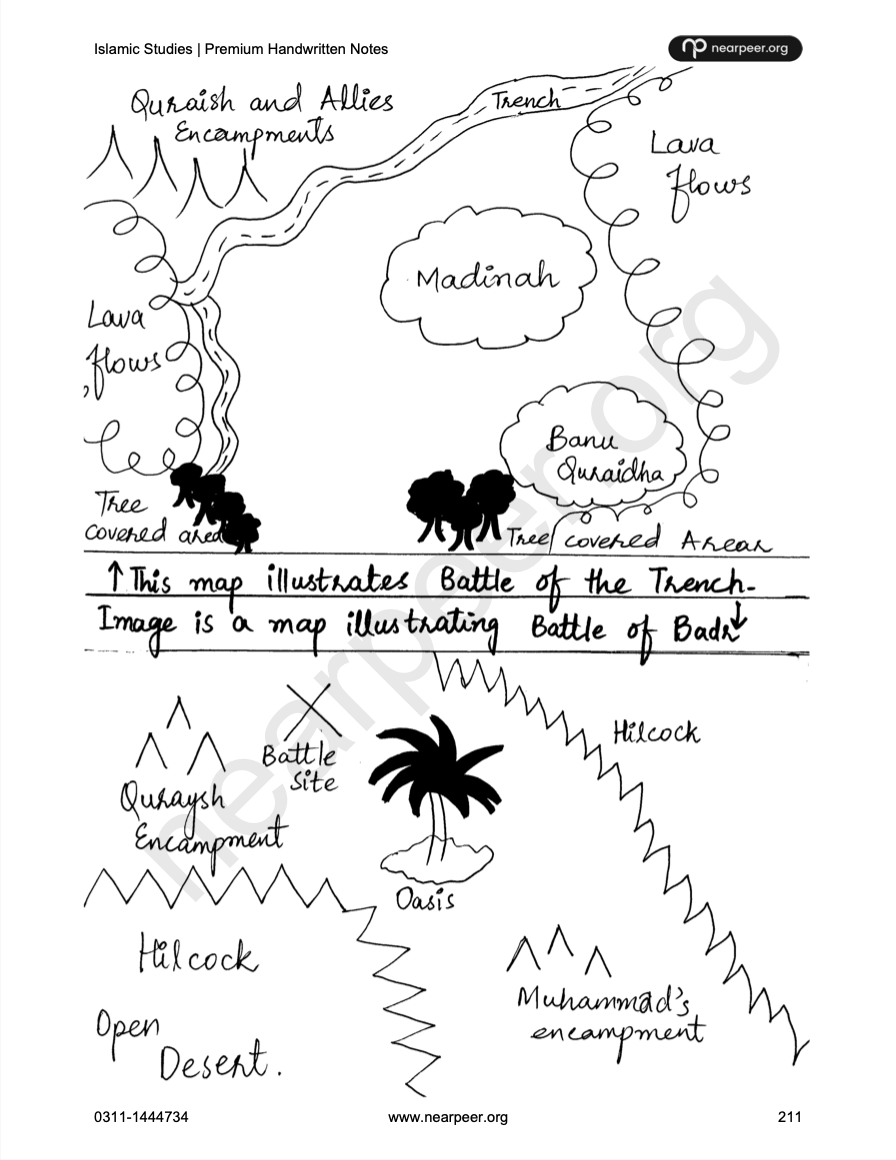 Islamic Studies | Premium Handwritten Notes
nearpeer.org
Quraish and Allies
Encampments
Trench
Lava
flows
Madinah
Lava
flows
Banu
Quraidha
Tree
covered area
Tree covered Areas
↑ This map illustrates Battle of the Trench-
Image is a map illustrating Battle of Badr↓
Hilcock
Battle
site
Quraysh
Encampment
Oasis
Hilcock
Muhammad's
encampment
Open
Desert.
nearpeer.org
0311-1444734
www.nearpeer.org
211